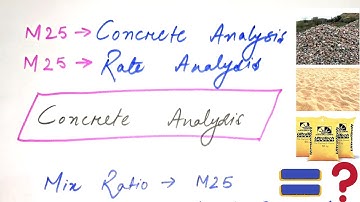 M25 → Concrete Analysis
M25 → Rate Analysis
Concrete Analysis
Mix Ratio → M25
= ?